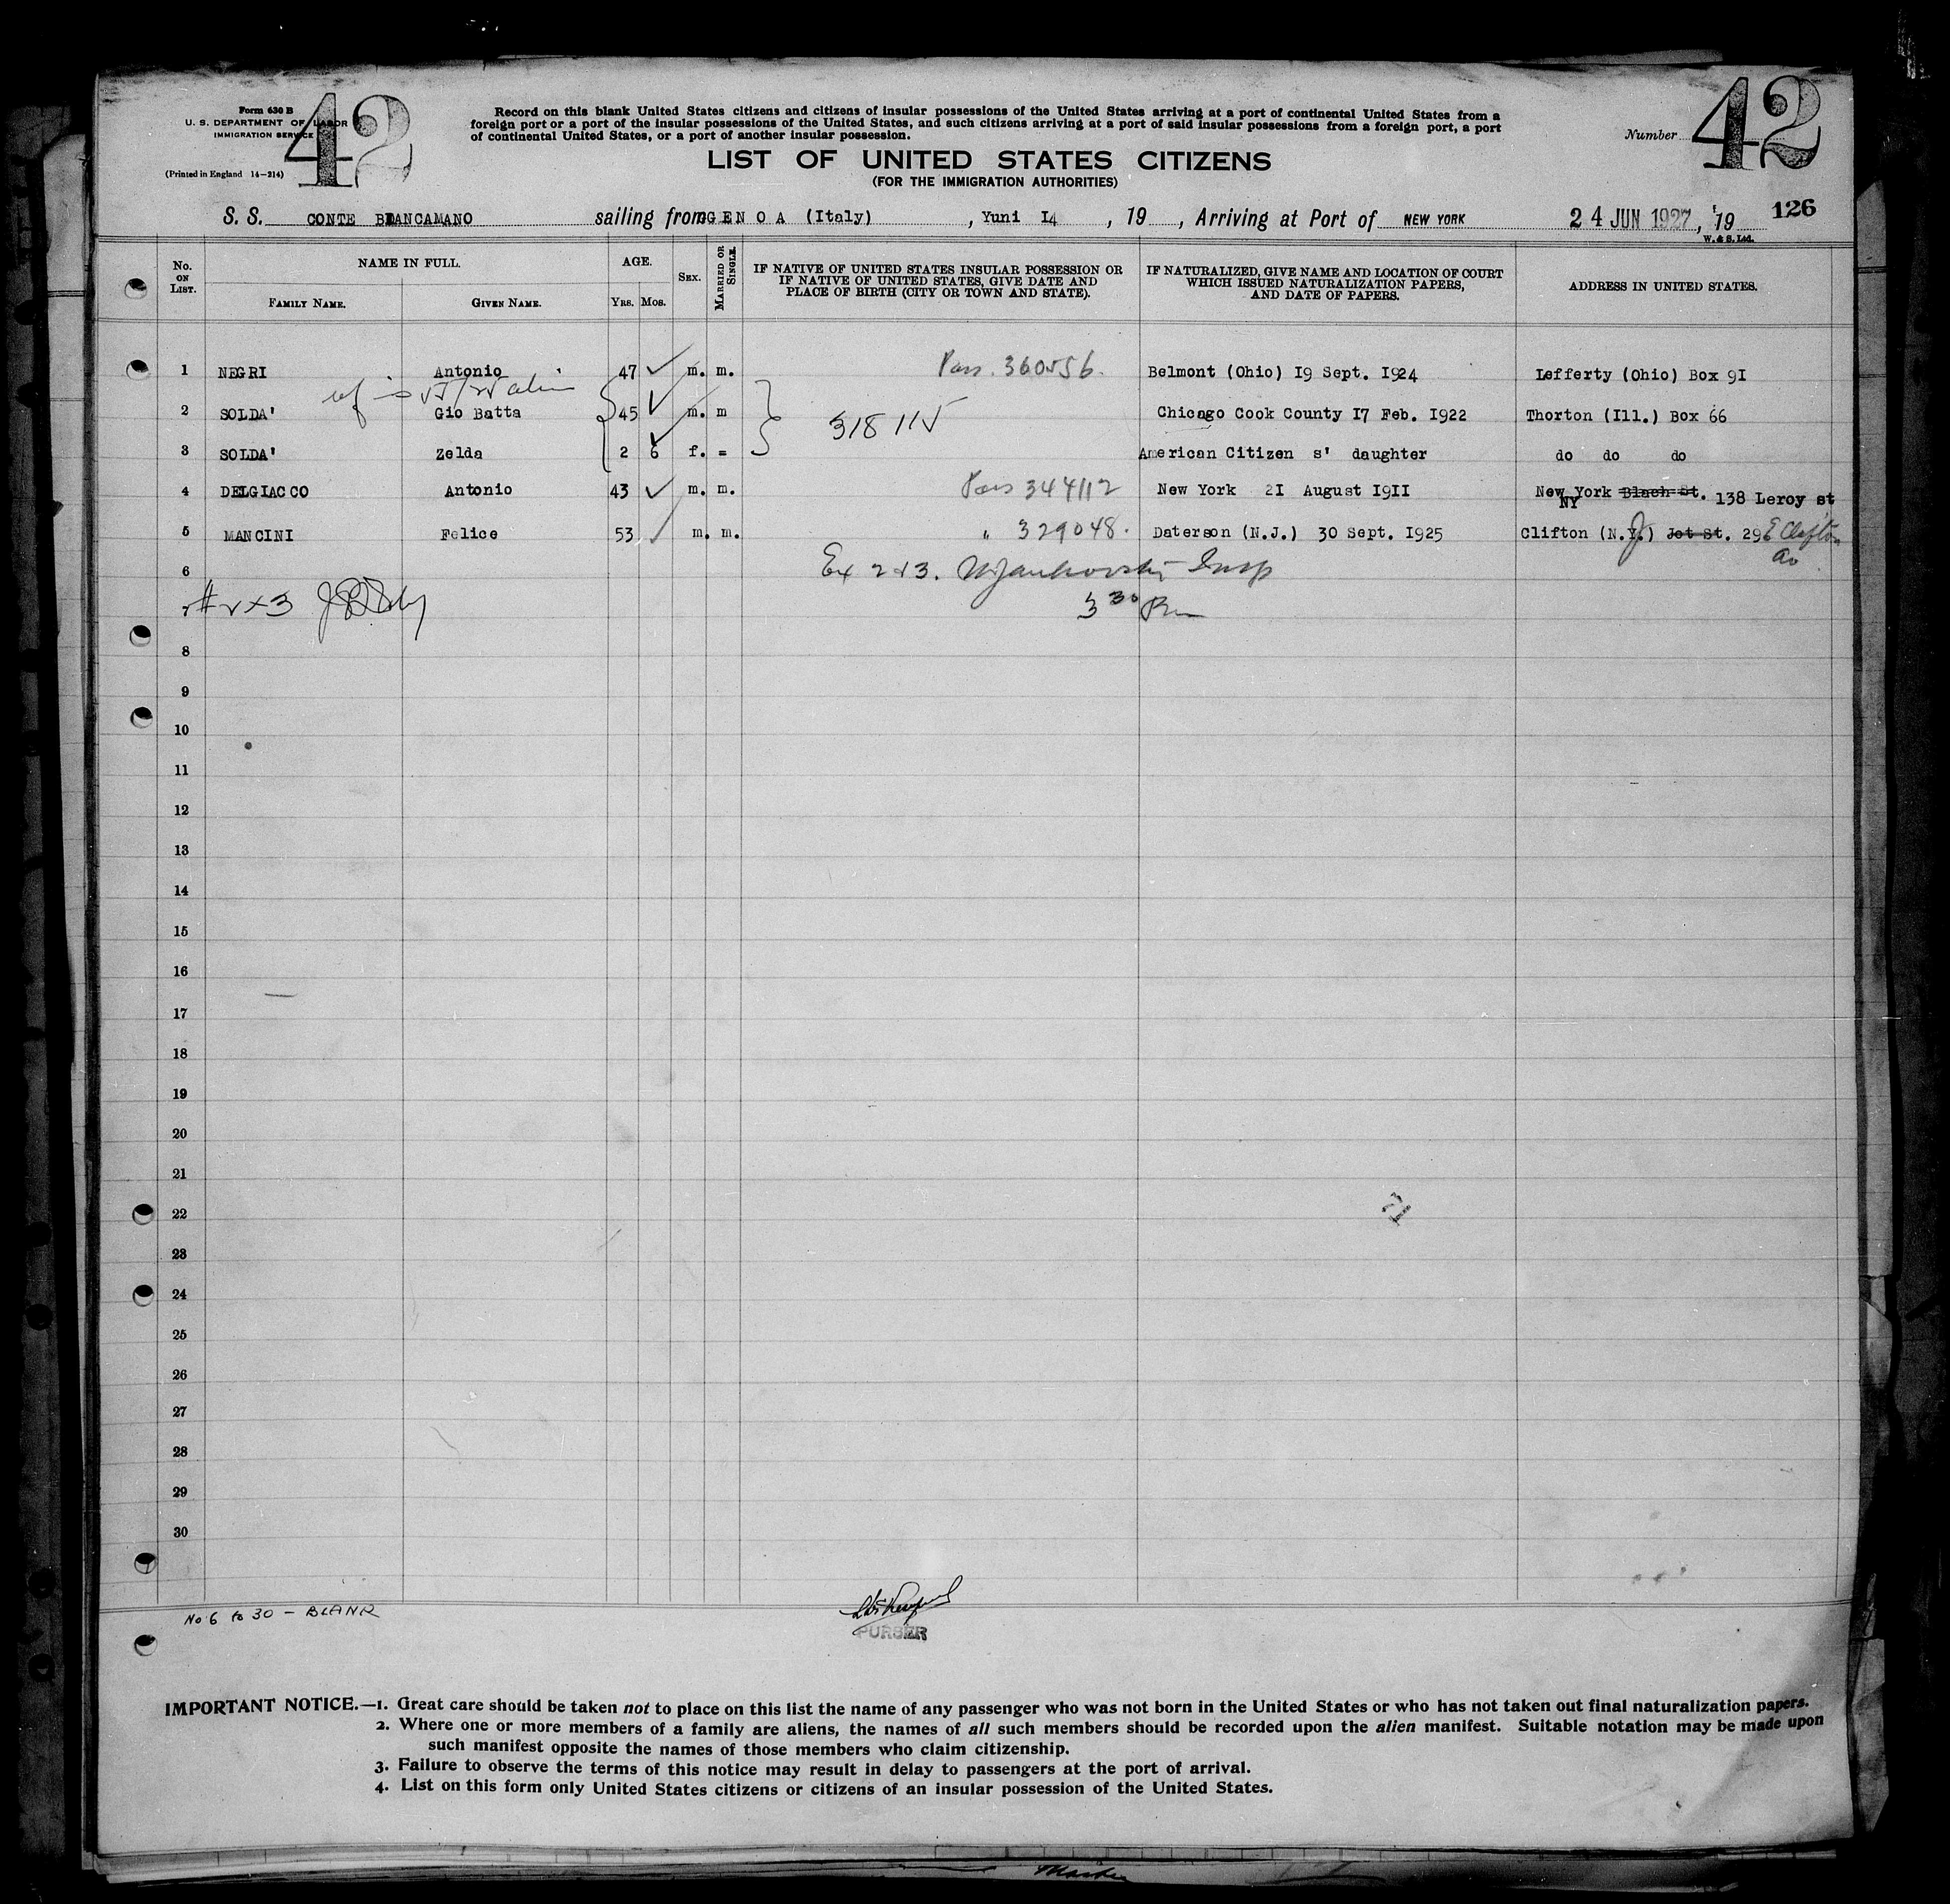 Form 630 B
U. S. DEPARTMENT OF LABOR
IMMIGRATION SERVICE
(Printed in England 14—214)
42
Record on this blank United States citizens and citizens of insular possessions of the United States arriving at a port of continental United States from a
foreign port or a port of the insular possessions of the United States, and such citizens arriving at a port of said insular possessions from a foreign port, a port
of continental United States, or a port of another insular possession.
Number 42
LIST OF UNITED STATES CITIZENS
(FOR THE IMMIGRATION AUTHORITIES)
S. S. CONTE BIANCAMANO sailing from GENOA (Italy), Yuni I4, 19 , Arriving at Port of NEW YORK 24 JUN 1927, 19 126
W. & S. Ltd.
No. ON LIST. NAME IN FULL. AGE. SEX. MARRIED OR SINGLE. IF NATIVE OF UNITED STATES INSULAR POSSESSION OR IF NATIVE OF UNITED STATES, GIVE DATE AND PLACE OF BIRTH (CITY OR TOWN AND STATE). IF NATURALIZED, GIVE NAME AND LOCATION OF COURT WHICH ISSUED NATURALIZATION PAPERS, AND DATE OF PAPERS. ADDRESS IN UNITED STATES.
FAMILY NAME. GIVEN NAME. YRS. MOS.
1 NEGRI Antonio 47 m. m. Pass. 360556. Belmont (Ohio) I9 Sept. I924 Lefferty (Ohio) Box 9I
2 SOLDA' Gio Batta 45 m. m 318115 Chicago Cook County I7 Feb. I922 Thorton (Ill.) Box 66
3 SOLDA' Zelda 2 6 f. = American Citizen s' daughter do do do
4 DELGIACCO Antonio 43 m. m. Pass 344112 New York 2I August I9II New York Blach St. 138 Leroy st
NY
5 MANCINI Felice 53 m. m. " 329048. Daterson (N.J.) 30 Sept. I925 Clifton (N.J.) Jot St. 296 E Clifton
Av
6 Ex 2 & 3. Insp
7 #2+3 3 30 Pm
8
9
10
11
12
13
14
15
16
17
18
19
20
21
22
23
24
25
26
27
28
29
30
No 6 to 30 - BLANK
PURSER
IMPORTANT NOTICE.—1. Great care should be taken not to place on this list the name of any passenger who was not born in the United States or who has not taken out final naturalization papers.
2. Where one or more members of a family are aliens, the names of all such members should be recorded upon the alien manifest. Suitable notation may be made upon
such manifest opposite the names of those members who claim citizenship.
3. Failure to observe the terms of this notice may result in delay to passengers at the port of arrival.
4. List on this form only United States citizens or citizens of an insular possession of the United States.